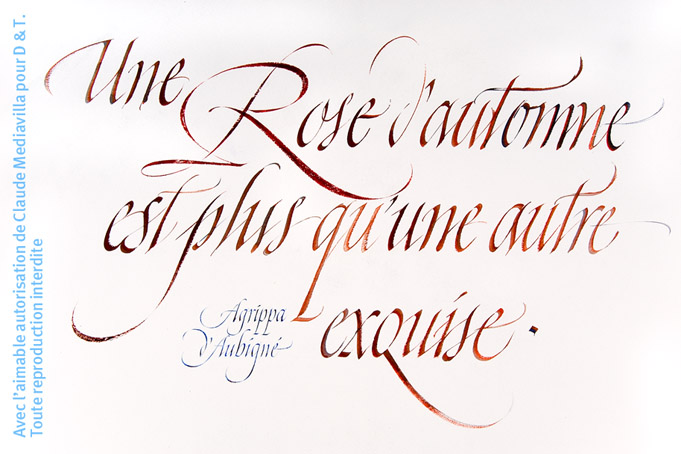 Une Rose d'automne
est plus qu'une autre
exquise.
Agrippa
d'Aubigné
Avec l'aimable autorisation de Claude Mediavilla pour D & T.
Toute reproduction interdite